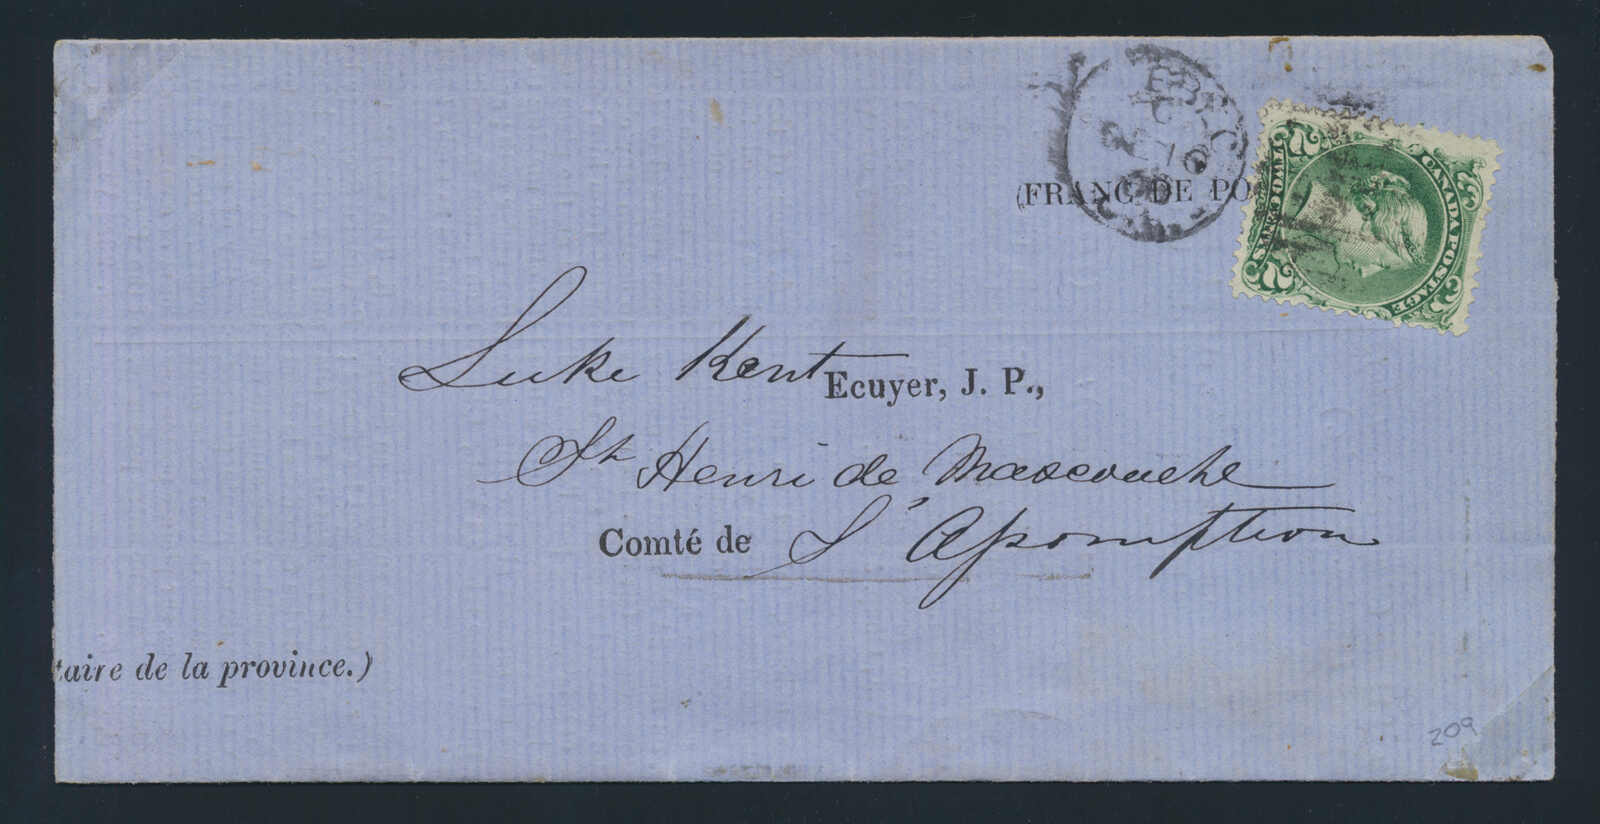 (FRANC DE PO
CANADA POSTAGE
TWO CENTS
2 2
2 2
Luke Kent Ecuyer, J. P.,
St Henri de Mascouche
Comté de L'Assomption
taire de la province.)
209